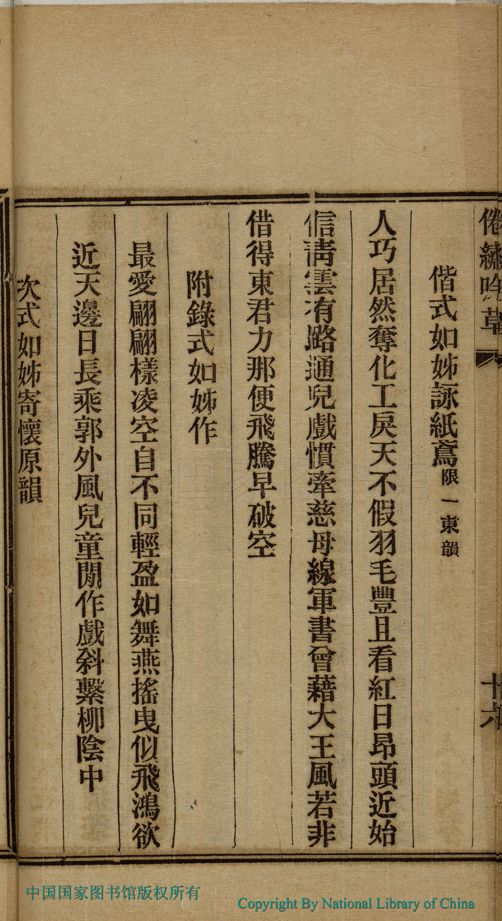 倦繡吟草
偕式如姊詠紙鳶限一東韻
人巧居然奪化工戾天不假羽毛豐且看紅日昂頭近始
信靑雲有路通兒戲慣牽慈母線軍書曾藉大王風若非
借得東君力那便飛騰早破空
附錄式如姊作
最愛翩翩樣凌空自不同輕盈如舞燕搖曳似飛鴻欲
近天邊日長乘郭外風兒童閒作戲斜繫柳陰中
次式如姊寄懷原韻
中国国家图书馆版权所有
Copyright By National Library of China